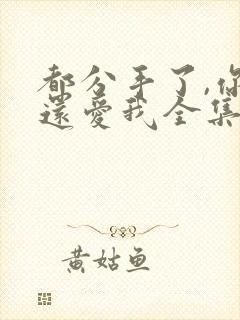 都分手了,你
還愛我全集
黄姑鱼